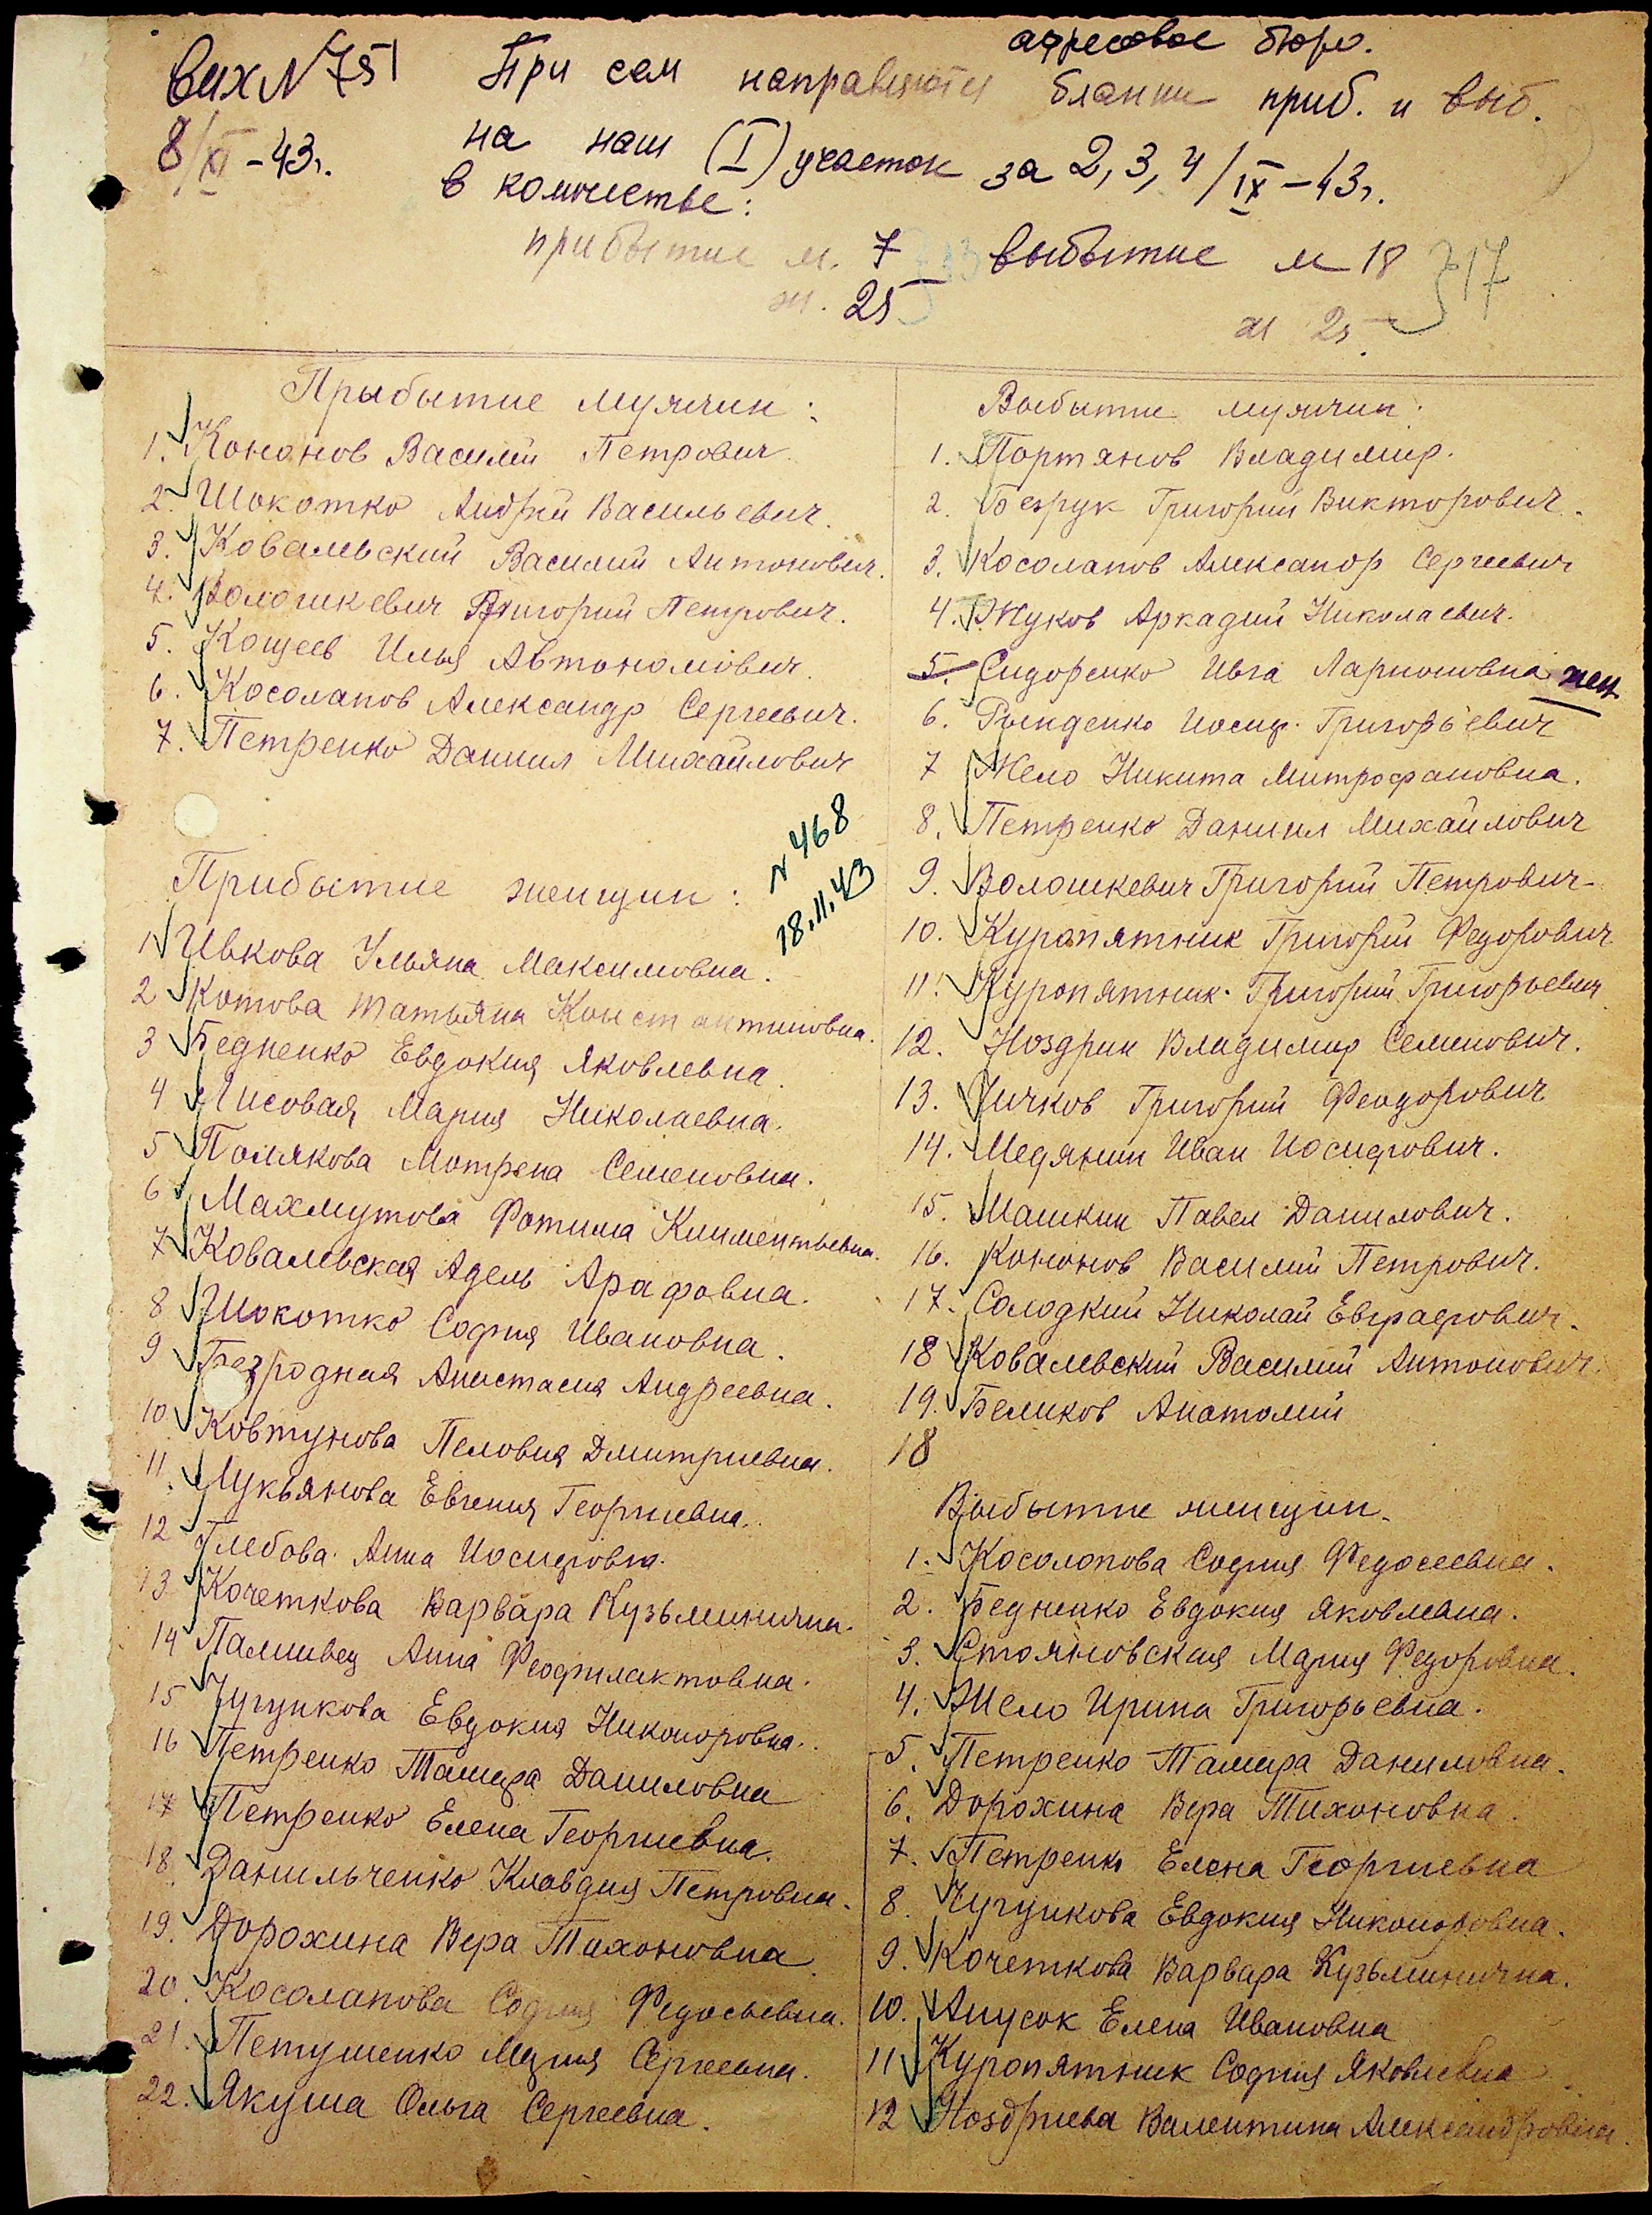 адресовое бюро.
Вих N 751 При сем направляются бланки приб. и выб.
8/XI-43г. на наш (I) участок за 2, 3, 4/IX-43г.
в количестве:
прибытие м. 7 выбытие м 18
ж. 25 ж 25 17
Прыбытие мужчин:
1. Кононов Василий Петрович.
2. Шокотко Андрей Васильевич.
3. Ковалевский Василий Антонович.
4. Волошкевич Григорий Петрович.
5. Кощеев Илья Автономович.
6. Косолапов Александр Сергеевич.
7. Петренко Даниил Михайлович
N 468
18.11.43
Прибытие женщин:
1 Ивкова Ульяна Максимовна.
2 Котова Татьяна Константиновна.
3 Бедненко Евдокия Яковлевна.
4 Лисовая Мария Николаевна.
5 Полякова Мотрена Семеновна.
6 Махмутова Фатима Климентьевна.
7 Ковалевская Адель Арафовна.
8 Шокотко София Ивановна.
9 Безродная Анастасия Андреевна.
10 Ковтунова Пеловия Дмитриевна.
11. Лукьянова Евгения Георгиевна.
12 Глебова Анна Иосифовна.
13 Кочеткова Варвара Кузьминична.
14 Паливец Анна Феофилактовна.
15 Чугункова Евдокия Никоноровна.
16 Петренко Тамара Даниловна
17 Петренко Елена Георгиевна.
18. Данильченко Клавдия Петровна.
19. Дорохина Вера Тихоновна.
20. Косолапова София Федосьевна.
21. Петушенко Мария Сергеевна.
22. Якуша Ольга Сергеевна.
Выбытие мужчин.
1. Портянов Владимир.
2. Безрук Григорий Викторович.
3. Косолапов Александр Сергеевич
4. Жуков Аркадий Николаевич.
5. Сидоренко Ивга Ларионовна жен.
6. Рынденко Иосиф. Григорьевич
7 Жело Никита Митрофановна.
8. Петренко Даниил Михайлович
9. Волошкевич Григорий Петрович
10. Куропятник Григорий Федорович
11. Куропятник Григорий Григорьевич
12. Ноздрин Владимир Семенович.
13. Чичков Григорий Феодорович
14. Медянин Иван Иосифович.
15. Машкин Павел Данилович.
16. Кононов Василий Петрович.
17. Солодкий Николай Евграфович.
18 Ковалевский Василий Антонович.
19. Беликов Анатолий
18
Выбытие женщин.
1. Косолопова София Федосеевна.
2. Бедненко Евдокия Яковлевна.
3. Стояновская Мария Федоровна.
4. Жело Ирина Григорьевна.
5. Петренко Тамара Даниловна.
6. Дорохина Вера Тихоновна.
7. Петренко Елена Георгиевна
8. Чугункова Евдокия Никоноровна.
9. Кочеткова Варвара Кузьминична.
10. Анусок Елена Ивановна
11 Куропятник София Яковлевна
12 Ноздриева Валентина Александровна.